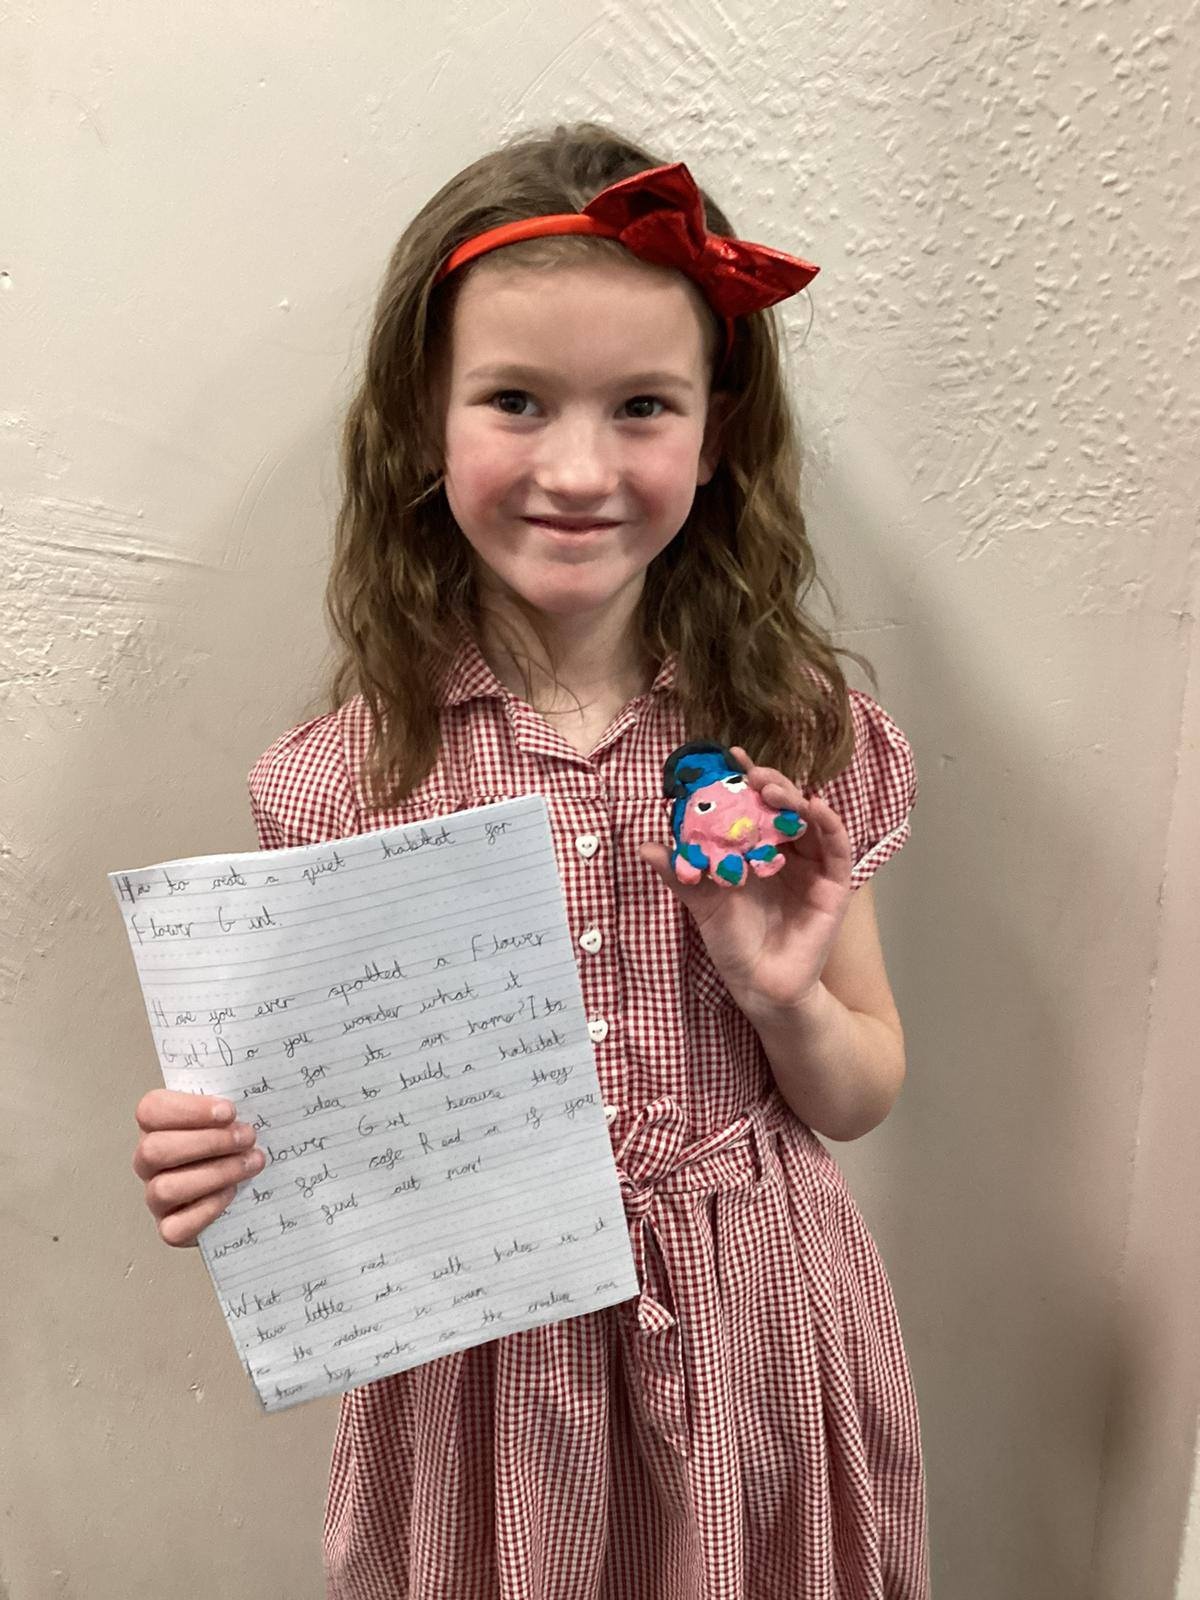 How to create a quiet habitat for
Flower Gint.
Have you ever spotted a Flower
Gint? Do you wonder what it
need for its own home? Its
at idea to build a habitat
lower Gint because they
to feel safe Read on if you
want to find out more!
What you need:
two little rocks with holes in it
so the creature is warm
two big rocks so the creature can